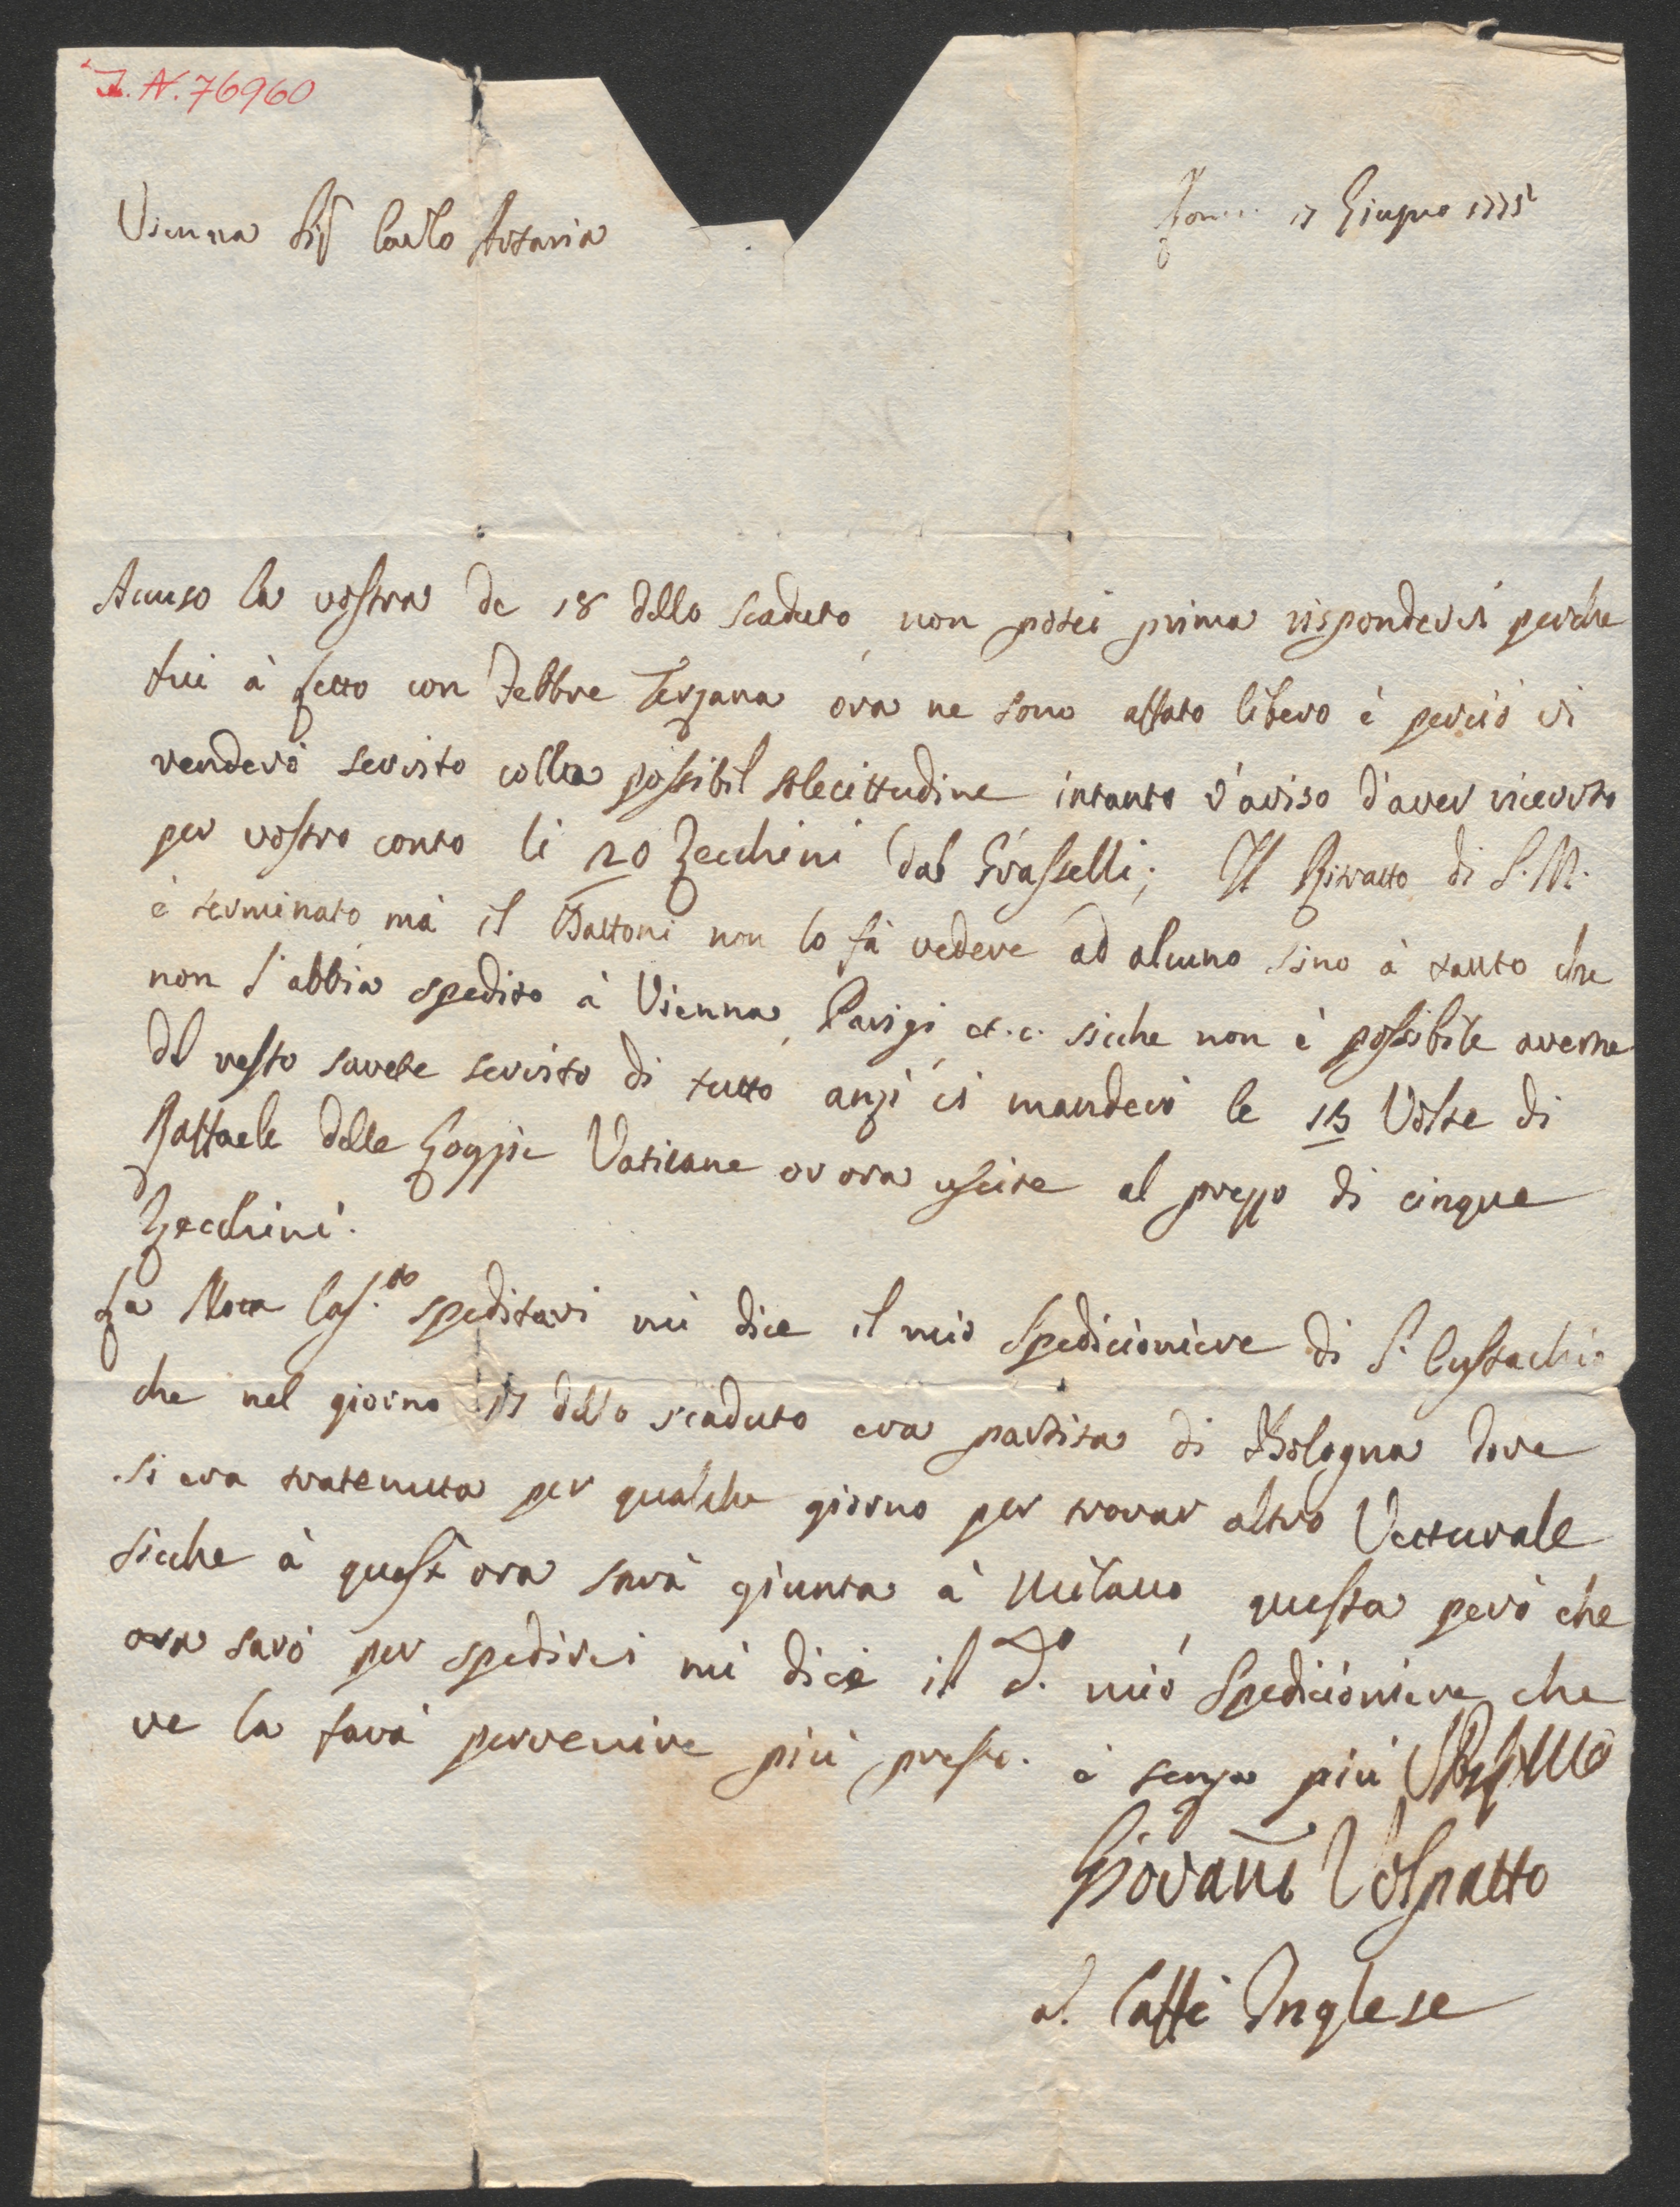 I. N. 76960
Vienna Sig.r Carlo Artaria
17 Giugno 1775
Acuso la vostra de 18 dello scaduto, non potei prima rispondervi perche
fui à Letto con Febbre Terzana ora ne sono affato libero è perciò vi
renderò servito colla possibil solecittudine intanto v'aviso d'aver ricevuto
per vostro conto li 20 Zecchini dal Grasselli; Il Ritratto di S. M.
è terminato, mà il Battoni non lo fà vedere ad alcuno sino à tanto che
non l'abbia spedito à Vienna, Parigi, et. c. sicche non è possibile averne
del resto sarete servito di tutto anzi vi manderò le 13 Volte di
Raffaele delle Loggie Vaticane or ora uscite al prezzo di cinque
Zecchini.
La Nota Cas.ta speditavi mi dice il mio Spedicioniere di S. Eustachio
che nel giorno 17 dello scaduto era partita di Bologna dove
si era tratenuta per qualche giorno per trovar altro Vetturale
sicche à quest'ora sarà giunta à Milano, questa però che
ora sarò per spedirvi mi dice il d.o mio Spedicioniere che
ve la farà pervenire più presto. è senza più
Giovanni Volpatto
al Caffè Inglese